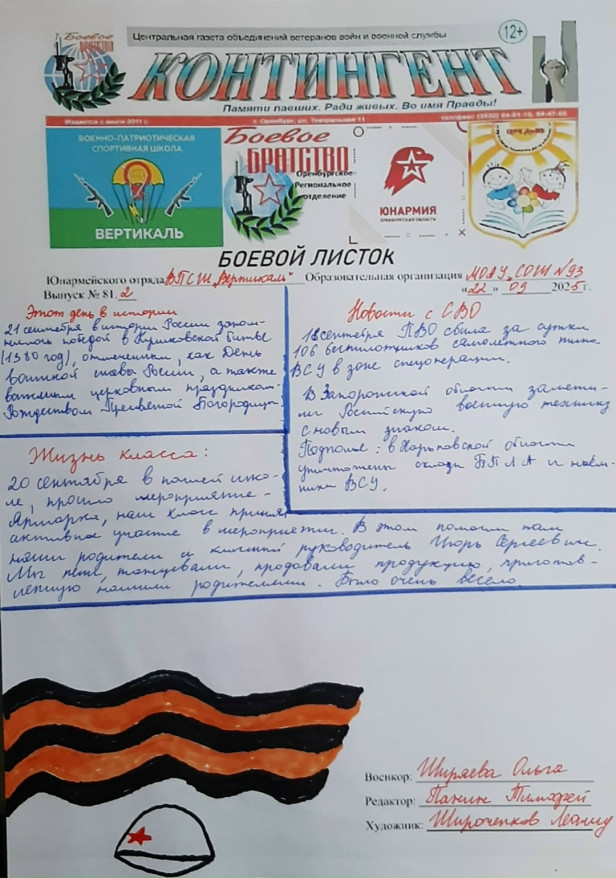 Центральная газета объединений ветеранов войн и военной службы
12+
Боевое
БРАТСТВО
КОНТИНГЕНТ
Памяти павших. Ради живых. Во имя Правды!
Издается с июля 2011 г. г. Оренбург, ул. Театральная 11 телефон: (3532)
ВОЕННО-ПАТРИОТИЧЕСКАЯ
СПОРТИВНАЯ ШКОЛА
ВЕРТИКАЛЬ
Боевое
БРАТСТВО
Оренбургское
Региональное
отделение
ЮНАРМИЯ
ОРЕНБУРГСКАЯ ОБЛАСТЬ
БОЕВОЙ ЛИСТОК
Юнармейского отряда ВПСШ "Вертикаль" Образовательная организация МОАУ "СОШ №93
Выпуск № 81.2 «22» 09 2025 г.
Этот день в истории
21 сентября в истории России запом-
нилось победой в Куликовской битве
(1380 год), отмечаемым, как День
воинской славы России, а также
великим церковным праздником
Рождеством Пресвятой Богородицы.
Новости с СВО
18 сентября ПВО сбила за сутки
106 беспилотников самолетного типа
ВСУ в зоне спецоперации.
В Запорожской области замети-
ли Российскую военную технику
с новым знаком.
Подполье: в Харьковской области
уничтожены склады БПЛА и наём-
ники ВСУ.
Жизнь класса:
20 сентября в нашей шко-
ле, прошло мероприятие -
Ярмарка, наш класс принял
активное участие в мероприятии. В этом помогли нам
наши родители и классный руководитель Игорь Сергеевич.
Мы пели, танцевали, продавали продукцию, приготов-
ленную нашими родителями. Было очень весело.
Военкор: Ширяева Ольга
Редактор: Панин Тимофей
Художник: Широченков Леонид